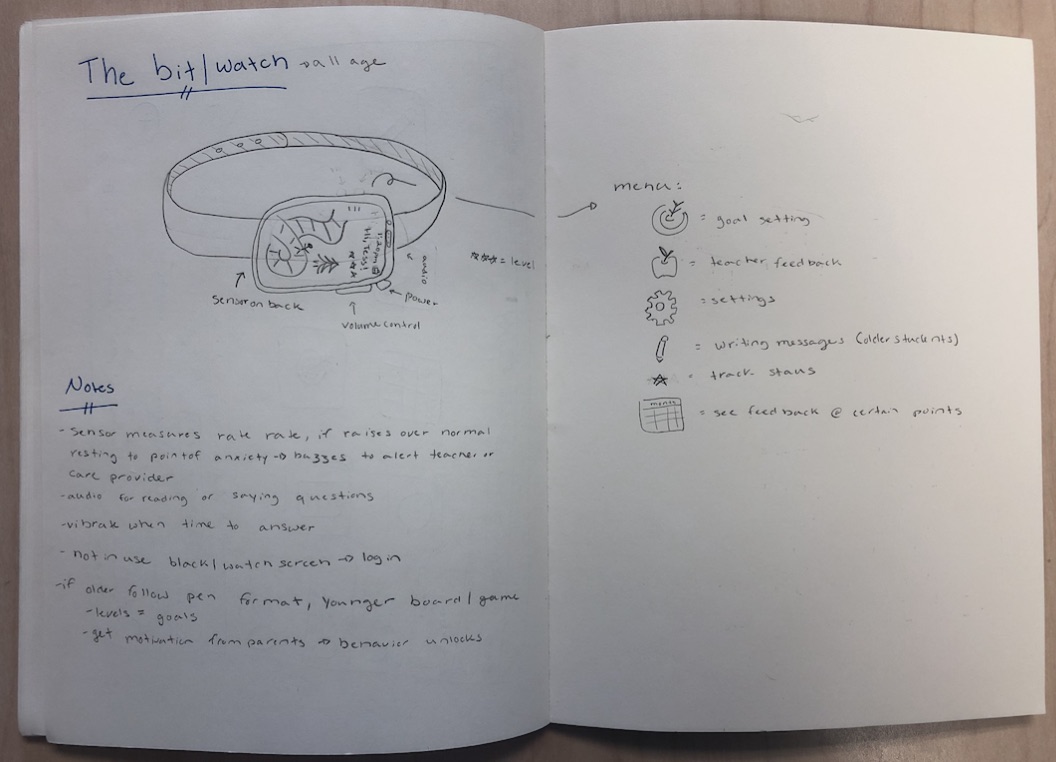 The bit/watch → all age
Hi, Tess!
*** = level
audio
power
sensor on back
volume control
Notes
- sensor measures rate rate, if raises over normal
resting to point of anxiety → buzzes to alert teacher or
care provider
- audio for reading or saying questions
- vibrate when time to answer
- not in use black/watch screen → log in
- if older follow pen format, younger board/game
- levels = goals
- get motivation from parents → behavior unlocks
menu:
= goal setting
= teacher feedback
= settings
= writing messages (older students)
= track stars
month
= see feedback @ certain points